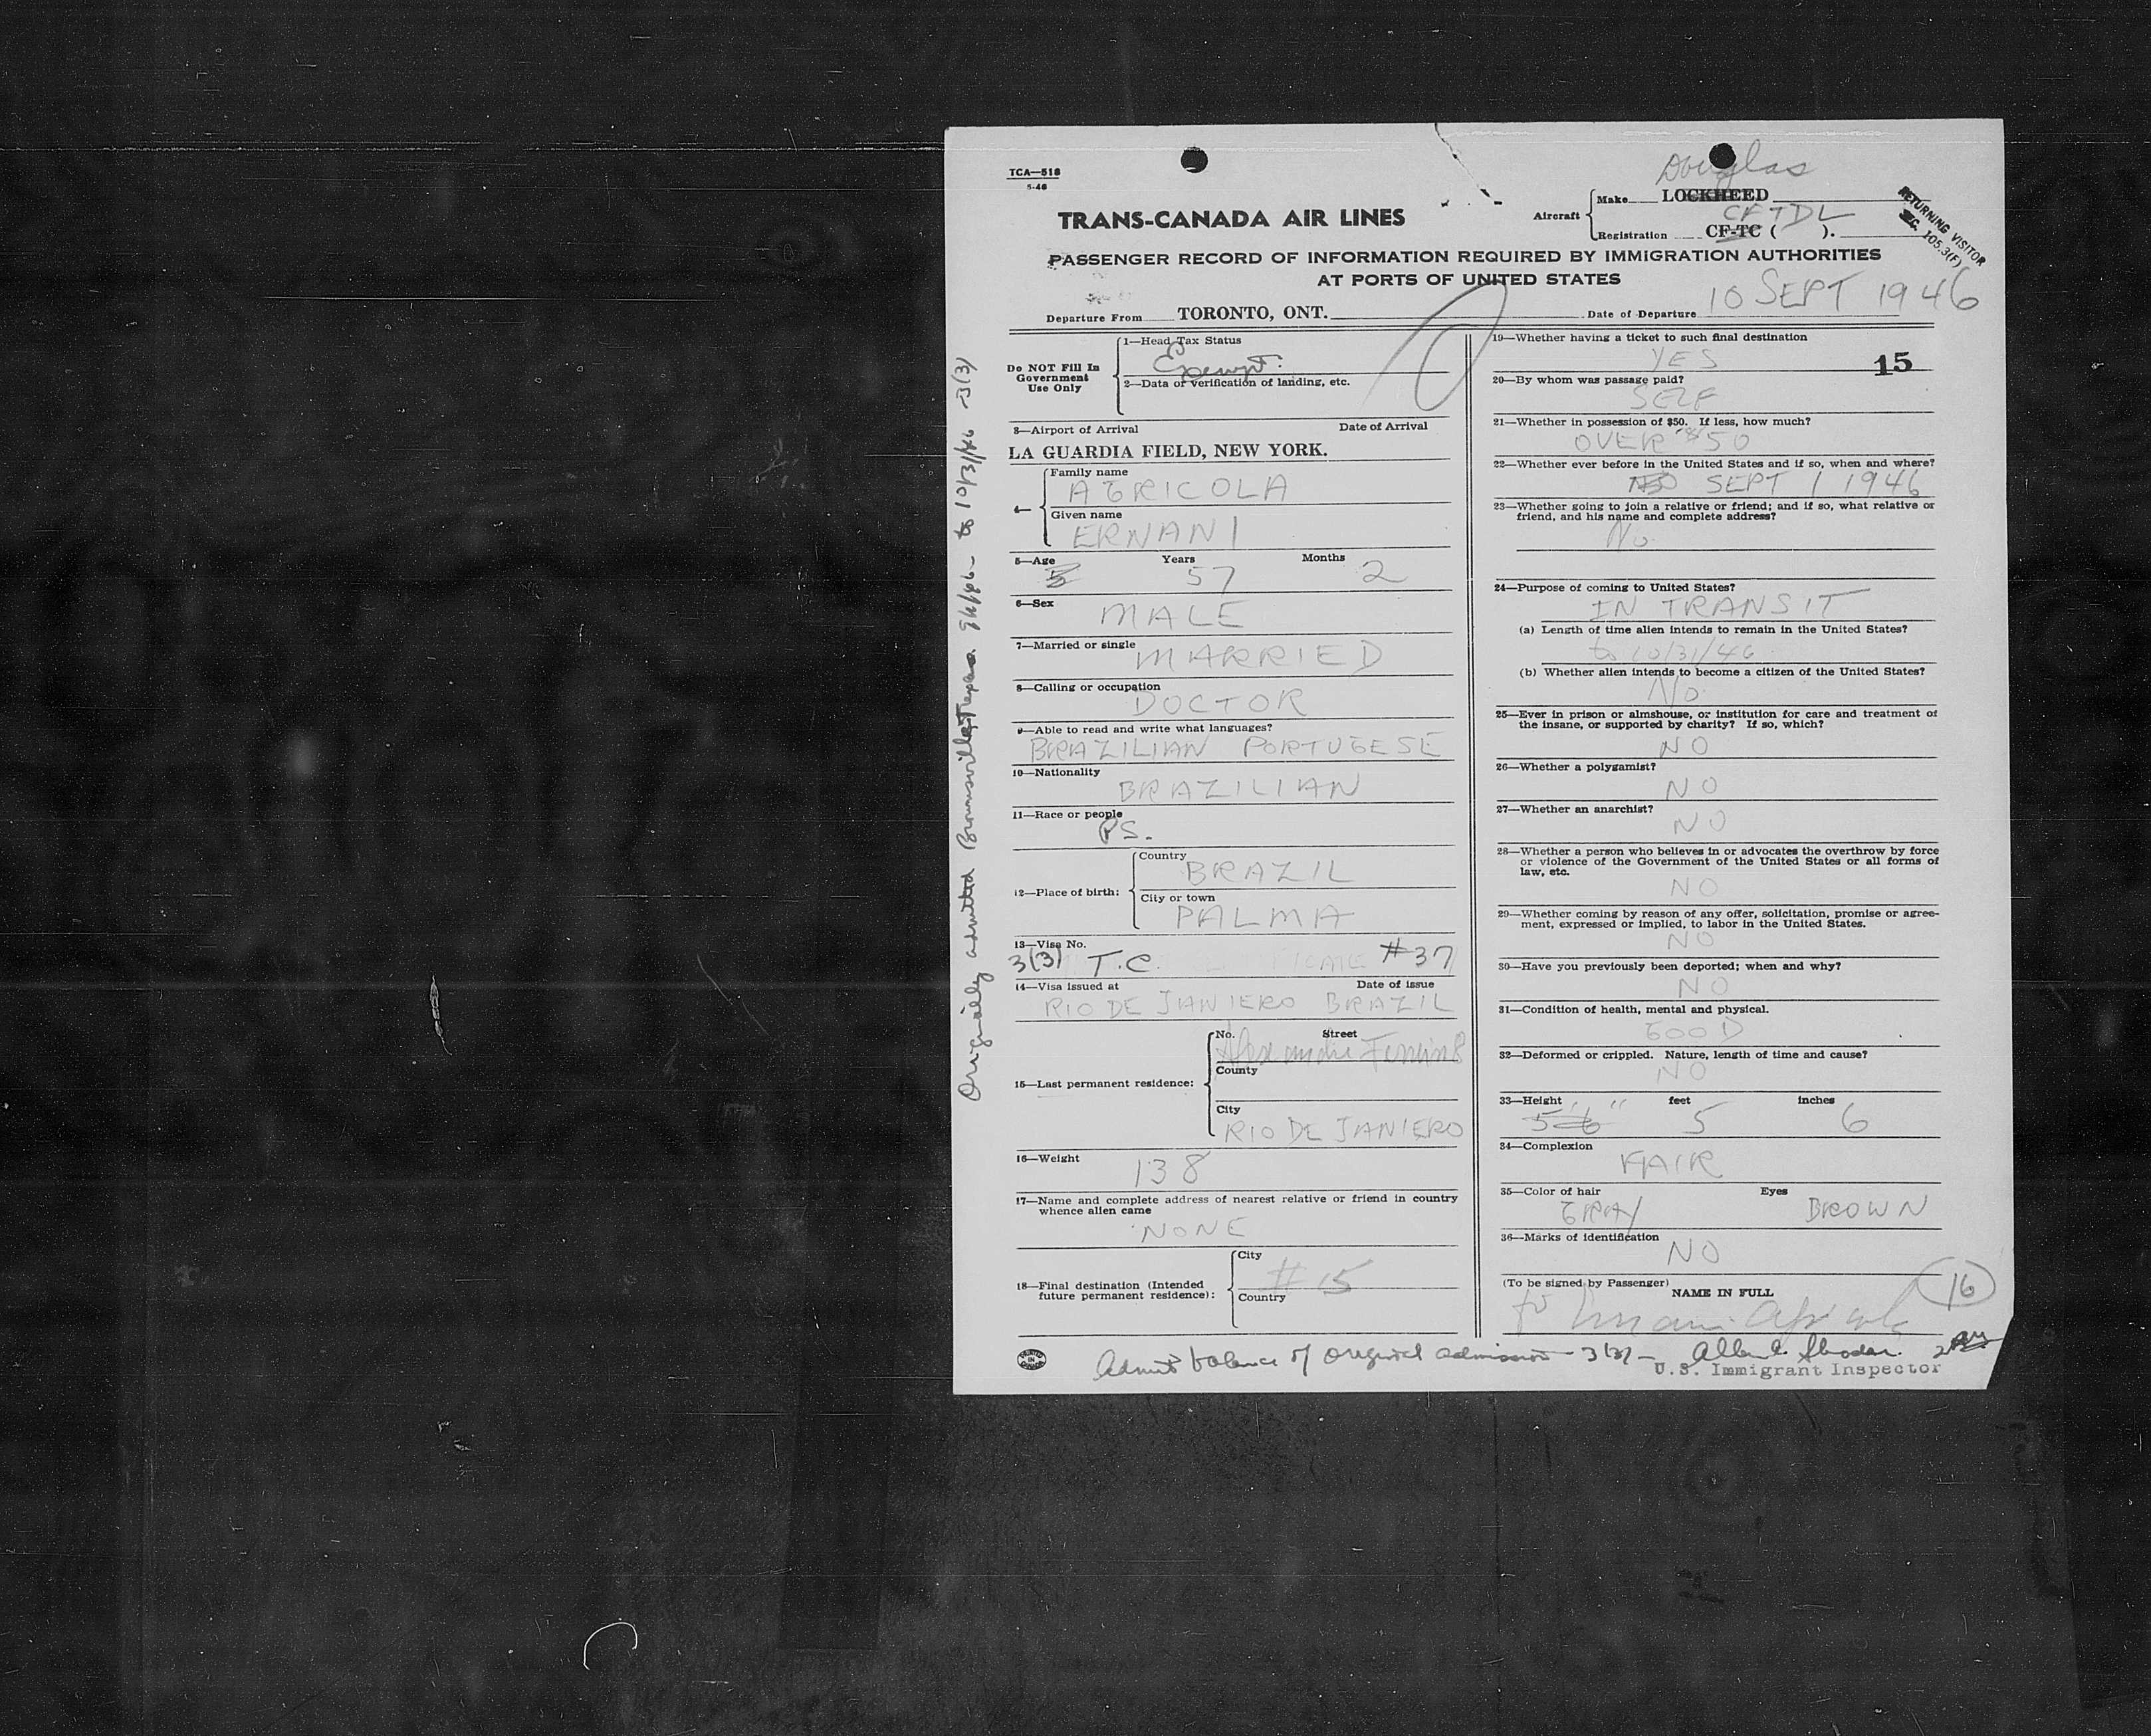 TCA—518
5-46
Douglas
Aircraft
Make LOCKHEED
CFTDL
Registration CF-TC ( ).
RETURNING VISITOR
SEC. 105.3(F)
TRANS-CANADA AIR LINES
PASSENGER RECORD OF INFORMATION REQUIRED BY IMMIGRATION AUTHORITIES
AT PORTS OF UNITED STATES
Departure From TORONTO, ONT. Date of Departure 10 SEPT 1946
Originally admitted Brownsville, Texas 9/1/46 - to 10/31/46 - 3(3)
Do NOT Fill In
Government
Use Only
1—Head Tax Status
Exempt.
2—Data of verification of landing, etc.
3—Airport of Arrival Date of Arrival
LA GUARDIA FIELD, NEW YORK.
4—
Family name
AGRICOLA
Given name
ERNANI
5—Age Years Months
5 57 2
6—Sex
MALE
7—Married or single
MARRIED
8—Calling or occupation
DOCTOR
9—Able to read and write what languages?
BRAZILIAN PORTUGESE
10—Nationality
BRAZILIAN
11—Race or people
PS.
12—Place of birth:
Country
BRAZIL
City or town
PALMA
13—Visa No.
3(3) T.C. #37
14—Visa issued at Date of issue
RIO DE JANIERO BRAZIL
15—Last permanent residence:
No. Street
County
City
RIO DE JANIERO
16—Weight
138
17—Name and complete address of nearest relative or friend in country
whence alien came
NONE
18—Final destination (Intended
future permanent residence):
City
# 15
Country
19—Whether having a ticket to such final destination
YES
15
20—By whom was passage paid?
SELF
21—Whether in possession of $50. If less, how much?
OVER $50
22—Whether ever before in the United States and if so, when and where?
NO SEPT 1 1946
23—Whether going to join a relative or friend; and if so, what relative or
friend, and his name and complete address?
No
24—Purpose of coming to United States?
IN TRANSIT
(a) Length of time alien intends to remain in the United States?
to 10/31/46
(b) Whether alien intends to become a citizen of the United States?
No
25—Ever in prison or almshouse, or institution for care and treatment of
the insane, or supported by charity? If so, which?
NO
26—Whether a polygamist?
NO
27—Whether an anarchist?
NO
28—Whether a person who believes in or advocates the overthrow by force
or violence of the Government of the United States or all forms of
law, etc.
NO
29—Whether coming by reason of any offer, solicitation, promise or agree-
ment, expressed or implied, to labor in the United States.
NO
30—Have you previously been deported; when and why?
NO
31—Condition of health, mental and physical.
GOOD
32—Deformed or crippled. Nature, length of time and cause?
NO
33—Height feet inches
5'6" 5 6
34—Complexion
FAIR
35—Color of hair Eyes
GRAY BROWN
36—Marks of identification
NO
(To be signed by Passenger)
NAME IN FULL
16
Ernani Agricola
PRINTED IN CANADA
Admit balance of original admission - 3(3) -
U.S. Immigrant Inspector